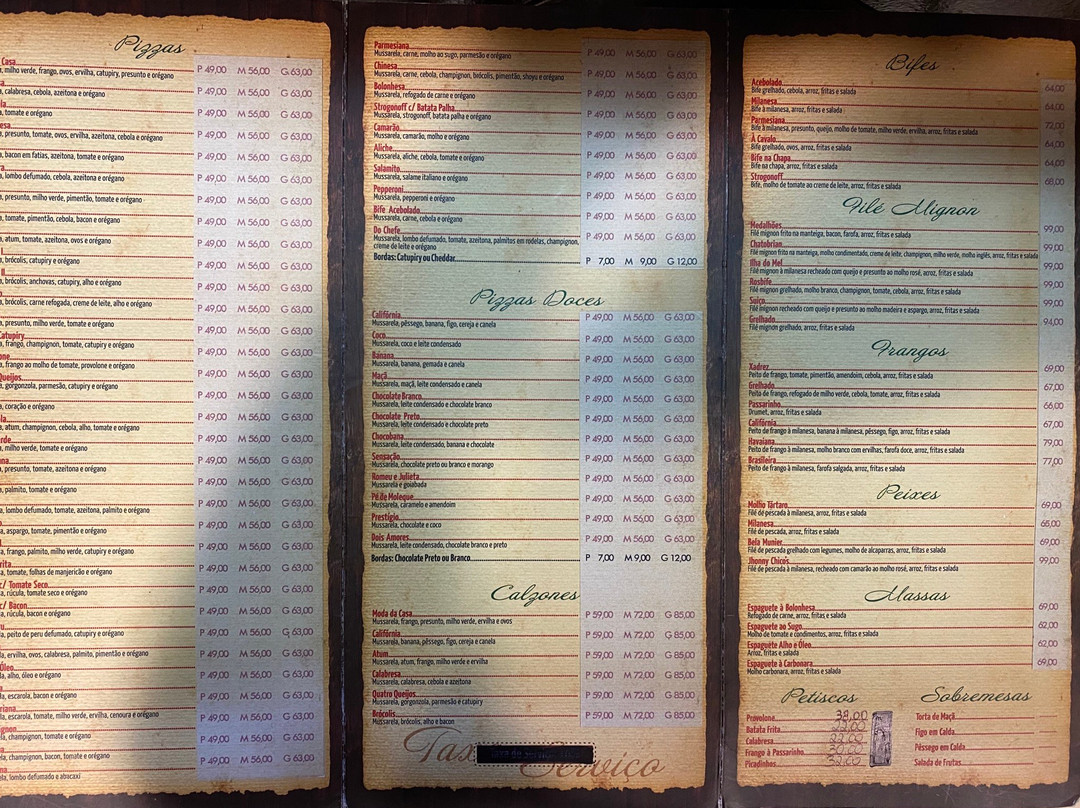 Pizzas
Casa P 49,00 M 56,00 G 63,00
, milho verde, frango, ovos, ervilha, catupiry, presunto e orégano
P 49,00 M 56,00 G 63,00
, calabresa, cebola, azeitona e orégano
P 49,00 M 56,00 G 63,00
, tomate e orégano
P 49,00 M 56,00 G 63,00
, presunto, tomate, ovos, ervilha, azeitona, cebola e orégano
P 49,00 M 56,00 G 63,00
, bacon em fatias, azeitona, tomate e orégano
P 49,00 M 56,00 G 63,00
, lombo defumado, cebola, azeitona e orégano
P 49,00 M 56,00 G 63,00
, presunto, milho verde, tomate e orégano
P 49,00 M 56,00 G 63,00
, tomate, pimentão, cebola, bacon e orégano
P 49,00 M 56,00 G 63,00
, atum, tomate, azeitona, ovos e orégano
P 49,00 M 56,00 G 63,00
, brócolis, catupiry e orégano
P 49,00 M 56,00 G 63,00
, brócolis, anchovas, catupiry, alho e orégano
P 49,00 M 56,00 G 63,00
, brócolis, carne refogada, creme de leite, alho e orégano
P 49,00 M 56,00 G 63,00
, presunto, milho verde, tomate e orégano
Catupiry P 49,00 M 56,00 G 63,00
, frango, champignon, tomate, catupiry e orégano
P 49,00 M 56,00 G 63,00
, frango ao molho de tomate, provolone e orégano
Queijos P 49,00 M 56,00 G 63,00
, gorgonzola, parmesão, catupiry e orégano
P 49,00 M 56,00 G 63,00
, coração e orégano
P 49,00 M 56,00 G 63,00
, atum, champignon, cebola, alho, tomate e orégano
P 49,00 M 56,00 G 63,00
, milho verde, tomate e orégano
P 49,00 M 56,00 G 63,00
, presunto, tomate, azeitona e orégano
P 49,00 M 56,00 G 63,00
, palmito, tomate e orégano
P 49,00 M 56,00 G 63,00
, lombo defumado, tomate, azeitona, palmito e orégano
P 49,00 M 56,00 G 63,00
, aspargo, tomate, pimentão e orégano
P 49,00 M 56,00 G 63,00
, frango, palmito, milho verde, catupiry e orégano
P 49,00 M 56,00 G 63,00
, tomate, folhas de manjericão e orégano
c/ Tomate Seco P 49,00 M 56,00 G 63,00
, rúcula, tomate seco e orégano
c/ Bacon P 49,00 M 56,00 G 63,00
, rúcula, bacon e orégano
P 49,00 M 56,00 G 63,00
, peito de peru defumado, catupiry e orégano
P 49,00 M 56,00 G 63,00
, ervilha, ovos, calabresa, palmito, pimentão e orégano
Óleo P 49,00 M 56,00 G 63,00
, alho, óleo e orégano
P 49,00 M 56,00 G 63,00
, escarola, bacon e orégano
P 49,00 M 56,00 G 63,00
, escarola, tomate, milho verde, ervilha, cenoura e orégano
P 49,00 M 56,00 G 63,00
, champignon, tomate e orégano
P 49,00 M 56,00 G 63,00
, champignon, bacon, tomate e orégano
P 49,00 M 56,00 G 63,00
, lombo defumado e abacaxi
Parmesiana P 49,00 M 56,00 G 63,00
Mussarela, carne, molho ao sugo, parmesão e orégano
Chinesa P 49,00 M 56,00 G 63,00
Mussarela, carne, cebola, champignon, brócolis, pimentão, shoyu e orégano
Bolonhesa P 49,00 M 56,00 G 63,00
Mussarela, refogado de carne e orégano
Strogonoff c/ Batata Palha P 49,00 M 56,00 G 63,00
Mussarela, strogonoff, batata palha e orégano
Camarão P 49,00 M 56,00 G 63,00
Mussarela, camarão, molho e orégano
Aliche P 49,00 M 56,00 G 63,00
Mussarela, aliche, cebola, tomate e orégano
Salamito P 49,00 M 56,00 G 63,00
Mussarela, salame italiano e orégano
Pepperoni P 49,00 M 56,00 G 63,00
Mussarela, pepperoni e orégano
Bife Acebolado P 49,00 M 56,00 G 63,00
Mussarela, carne, cebola e orégano
Do Chefe P 49,00 M 56,00 G 63,00
Mussarela, lombo defumado, tomate, azeitona, palmitos em rodelas, champignon,
creme de leite e orégano
Bordas: Catupiry ou Cheddar P 7,00 M 9,00 G 12,00
Pizzas Doces
Califórnia P 49,00 M 56,00 G 63,00
Mussarela, pêssego, banana, figo, cereja e canela
Coco P 49,00 M 56,00 G 63,00
Mussarela, coco e leite condensado
Banana P 49,00 M 56,00 G 63,00
Mussarela, banana, gemada e canela
Maçã P 49,00 M 56,00 G 63,00
Mussarela, maçã, leite condensado e canela
Chocolate Branco P 49,00 M 56,00 G 63,00
Mussarela, leite condensado e chocolate branco
Chocolate Preto P 49,00 M 56,00 G 63,00
Mussarela, leite condensado e chocolate preto
Chocobana P 49,00 M 56,00 G 63,00
Mussarela, leite condensado, banana e chocolate
Sensação P 49,00 M 56,00 G 63,00
Mussarela, chocolate preto ou branco e morango
Romeu e Julieta P 49,00 M 56,00 G 63,00
Mussarela e goiabada
Pé de Moleque P 49,00 M 56,00 G 63,00
Mussarela, caramelo e amendoim
Prestígio P 49,00 M 56,00 G 63,00
Mussarela, chocolate e coco
Dois Amores P 49,00 M 56,00 G 63,00
Mussarela, leite condensado, chocolate branco e preto
Bordas: Chocolate Preto ou Branco P 7,00 M 9,00 G 12,00
Calzones
Moda da Casa P 59,00 M 72,00 G 85,00
Mussarela, frango, presunto, milho verde, ervilha e ovos
Califórnia P 59,00 M 72,00 G 85,00
Mussarela, banana, pêssego, figo, cereja e canela
Atum P 59,00 M 72,00 G 85,00
Mussarela, atum, frango, milho verde e ervilha
Calabresa P 59,00 M 72,00 G 85,00
Mussarela, calabresa, cebola e azeitona
Quatro Queijos P 59,00 M 72,00 G 85,00
Mussarela, gorgonzola, parmesão e catupiry
Brócolis P 59,00 M 72,00 G 85,00
Mussarela, brócolis, alho e bacon
Serviço
Bifes
Acebolado 64,00
Bife grelhado, cebola, arroz, fritas e salada
Milanesa 64,00
Bife à milanesa, arroz, fritas e salada
Parmesiana 72,00
Bife à milanesa, presunto, queijo, molho de tomate, milho verde, ervilha, arroz, fritas e salada
À Cavalo 64,00
Bife grelhado, ovos, arroz, fritas e salada
Bife na Chapa 64,00
Bife na chapa, arroz, fritas e salada
Strogonoff 68,00
Bife, molho de tomate ao creme de leite, arroz, fritas e salada
Filé Mignon
Medalhões 99,00
Filé mignon frito na manteiga, bacon, farofa, arroz, fritas e salada
Chatobrian 99,00
Filé mignon frito na manteiga, molho condimentado, creme de leite, champignon, milho verde, molho inglês, arroz, fritas e salada
Ilha do Mel 99,00
Filé mignon à milanesa recheado com queijo e presunto ao molho rosé, arroz, fritas e salada
Rosbife 99,00
Filé mignon grelhado, molho branco, champignon, tomate, cebola, arroz, fritas e salada
Suíço 99,00
Filé mignon recheado com queijo e presunto ao molho madeira e aspargo, arroz, fritas e salada
Grelhado 94,00
Filé mignon grelhado, arroz, fritas e salada
Frangos
Xadrez 69,00
Peito de frango, tomate, pimentão, amendoim, cebola, arroz, fritas e salada
Grelhado 67,00
Peito de frango, refogado de milho verde, cebola, tomate, arroz, fritas e salada
Passarinho 66,00
Drumet, arroz, fritas e salada
Califórnia 67,00
Peito de frango à milanesa, banana à milanesa, pêssego, figo, arroz, fritas e salada
Havaiana 79,00
Peito de frango à milanesa, molho branco com ervilhas, farofa doce, arroz, fritas e salada
Brasileira 77,00
Peito de frango à milanesa, farofa salgada, arroz, fritas e salada
Peixes
Molho Tártaro 69,00
Filé de pescada à milanesa, arroz, fritas e salada
Milanesa 65,00
Filé de pescada, arroz, fritas e salada
Bela Munier 69,00
Filé de pescada grelhado com legumes, molho de alcaparras, arroz, fritas e salada
Jhonny Chicos 99,00
Filé de pescada à milanesa, recheado com camarão ao molho rosé, arroz, fritas e salada
Massas
Espaguete à Bolonhesa 69,00
Refogado de carne, arroz, fritas e salada
Espaguete ao Sugo 62,00
Molho de tomate e condimentos, arroz, fritas e salada
Espaguete Alho e Óleo 62,00
Arroz, fritas e salada
Espaguete à Carbonara 69,00
Molho carbonara, arroz, fritas e salada
Petiscos
Provolone 38,00
Batata Frita 22,00
Calabresa 22,00
Frango à Passarinho 30,00
Picadinhos 32,00
Sobremesas
Torta de Maçã
Figo em Calda
Pêssego em Calda
Salada de Frutas